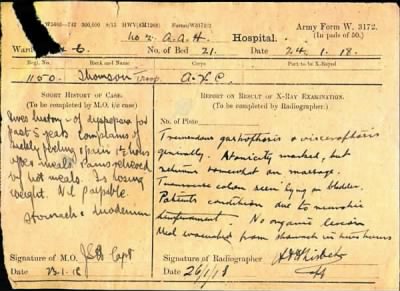 W5603-742 500,000 8/15 HWV(M1298) Forms/W3172/1
Army Form W. 3172.
No 2. A.A.H. Hospital. (In pads of 50.)
Ward No. of Bed 21. Date 24.1.18.
Regl. No. Rank and Name Corps Part to be X-Rayed
1150. Thomson Troop. A.F.C.
SHORT HISTORY OF CASE.
(To be completed by M.O. i/c case)
Gives history of dyspepsia for
past 5 years complains of
sickly feeling & pain 1½ hours
after meals. Pains relieved
by hot meals. Is losing
weight. Nil palpable.
Stomach & duodenum
Signature of M.O. Capt
Date 23-1-18
REPORT ON RESULT OF X-RAY EXAMINATION.
(To be completed by Radiographer.)
No. of Plate
Tremendous gastroptosis & visceroptosis
generally. Atonicity marked, but
returns somewhat on massage.
Transverse colon seen lying on bladder.
Patients condition due to muscular
No organic lesion
Meal evacuated from stomach in hours
Signature of Radiographer
Date 26/1/18